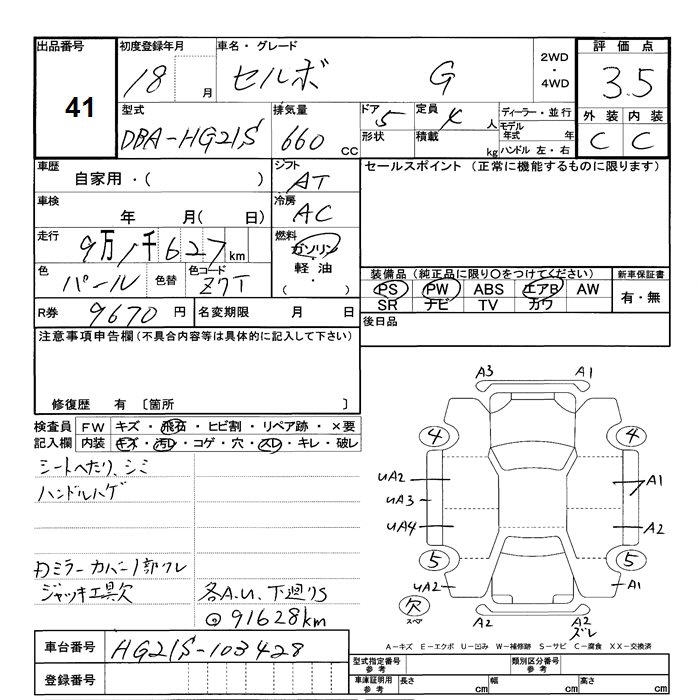 出品番号
41
初度登録年月
18 月
車名・グレード
セルボ G
2WD
・
4WD
評価点
3.5
外装 内装
C C
型式
DBA-HG21S
排気量
660 cc
ドア
5
形状
定員
4 人
積載
kg
ディーラー・並行
モデル年式 年
ハンドル 左・右
車歴
自家用・( )
シフト
AT
セールスポイント (正常に機能するものに限ります)
車検
年 月( 日)
冷房
AC
走行
9万1千627 km
燃料
ガソリン
軽油
( ・ )
色
パール
色替
色コード
Z7T
装備品 (純正品に限り○をつけてください)
PS PW ABS エアB AW
SR ナビ TV カワ
新車保証書
有・無
R券 9670 円
名変期限 月 日
後日品
注意事項申告欄 (不具合内容等は具体的に記入して下さい)
修復歴 有 〔箇所 〕
検査員記入欄
FW キズ・飛石・ヒビ割・リペア跡・×要
内装 キズ・汚レ・コゲ・穴・スレ・キレ・破レ
シートへたり、シミ
ハンドルハゲ
Dミラーカバー1部ワレ
ジャッキ工具欠
各A.U、下廻りS
◎91628km
A3 A1
4 4
UA2 A1
UA3
UA4 A2
5 5
UA2 A1
欠
スペア
A2 A2
ズレ
A-キズ E-エクボ U-凹み W-補修跡 S-サビ C-腐食 XX-交換済
車台番号 HG21S-103428
登録番号
型式指定番号
参考
類別区分番号
参考
車庫証明用
参考
長さ cm 幅 cm 高さ cm